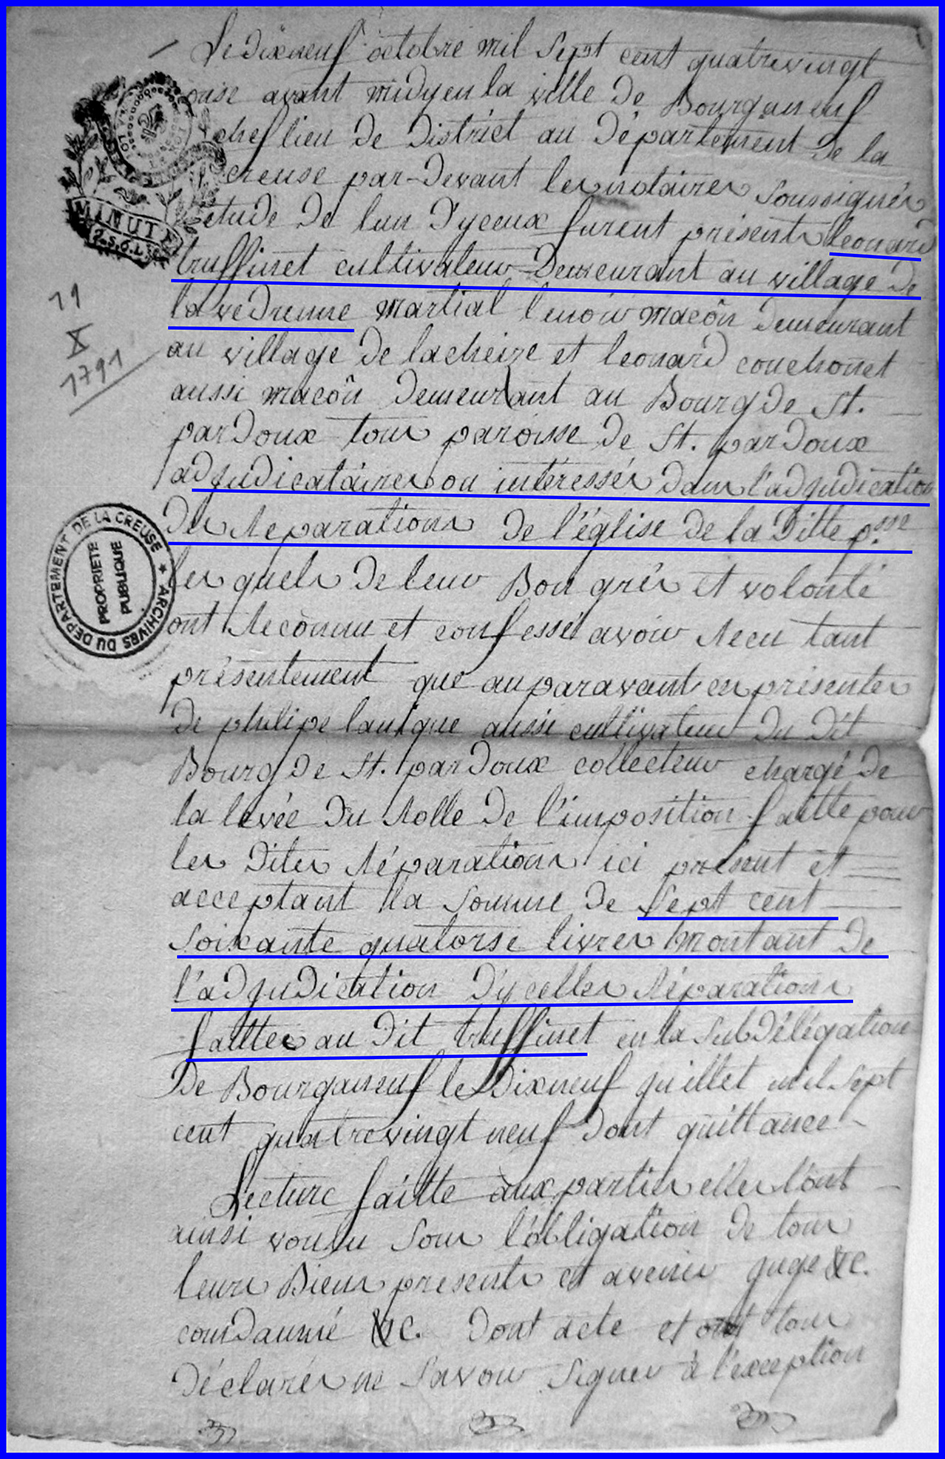 Le dixneuf octobre mil sept cent quatrevingt
onse avant midy en la ville de Bourganeuf
chef lieu de District au Département de la
creuse par-devant les notaires soussignés
etude de l'un d'yceux furent présents leonard
truffinet cultivateur Demeurant au village de
la vedrenne martial lenoir macôn demeurant
au village de lacheize et leonard couchonet
aussi macôn demeurant au Bourg de St.
pardoux tous paroisse de St. pardoux
adjudicataires ou intéressés dans l'adjudication
des Reparations de l'église de la Ditte p.sse
les quels de leur Bon grés et volonté
ont Reconnu et confessé avoir Recu tant
présentement que auparavant ces présentes
de philipe aussi cultivateur du dit
Bourg de St. pardoux collecteur chargé de
la levée du Rolle de l'imposition faitte pour
les dites Réparations ici présent et
acceptant la somme de sept cent
soixante quatorse livres montant de
l'adjudication d'ycelles Réparations
faittes au dit truffinet en la subdélégation
de Bourganeuf le dixneuf juillet mil sept
cent quatrevingt neuf dont quittance
Lecture faitte aux parties elles l'ont
ainsi voulu sous l'obligation de tous
leurs Biens presents et avenir juge &c.
condamné &c. dont acte et ont tous
déclarés ne savoir signer à l'exception
MINUTE
2.S.6.D
19
X
1791
ARCHIVES DU DEPARTEMENT DE LA CREUSE
PROPRIETE
PUBLIQUE